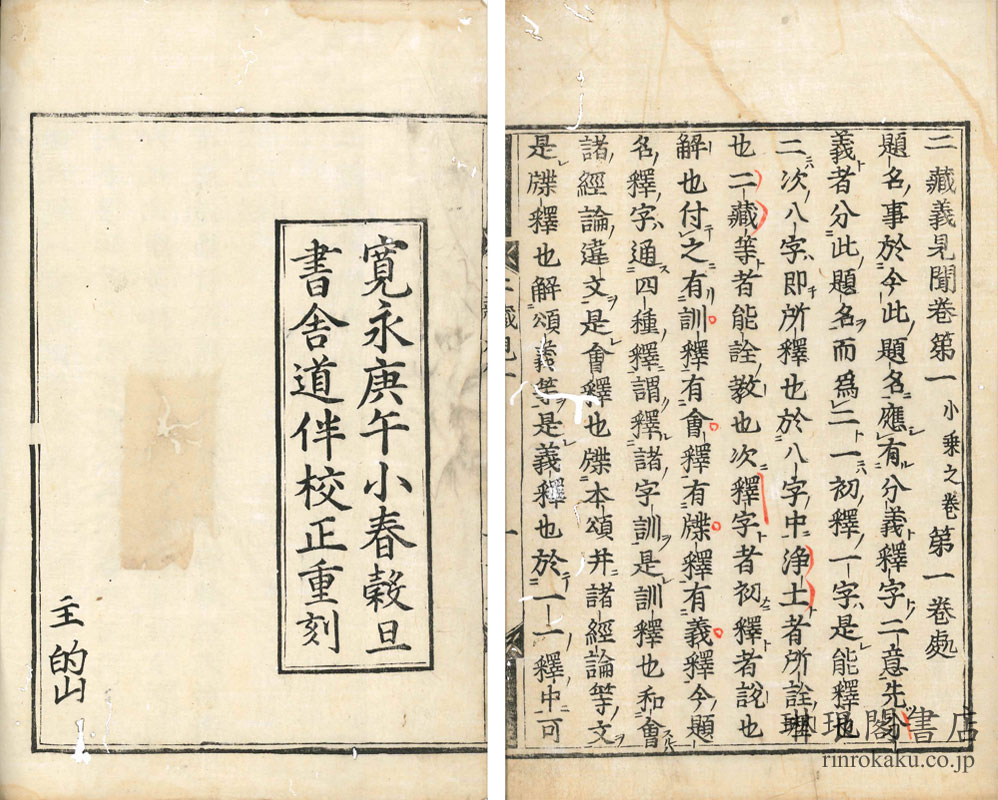 二藏義見聞卷第一 小乗之卷 第一卷處
題名事於今此題名應有分義釋字二意先分
義者分此題名而爲二一初釋一字是能釋也
二次八字即所釋也於八字中浄土者所詮
也二藏等者能詮教也次釋字者初釋者説也
解也付之有訓釋有會釋有牒釋有義釋今題
名釋字通四種釋謂釋諸字訓是訓釋也和會
諸經論違文是會釋也牒本頌并諸經論等文
是牒釋也解頌義等是義釋也於一一釋中可
寛永庚午小春穀旦
書舎道伴校正重刻
主 的山
琳琅閣書店
rinrokaku.co.jp